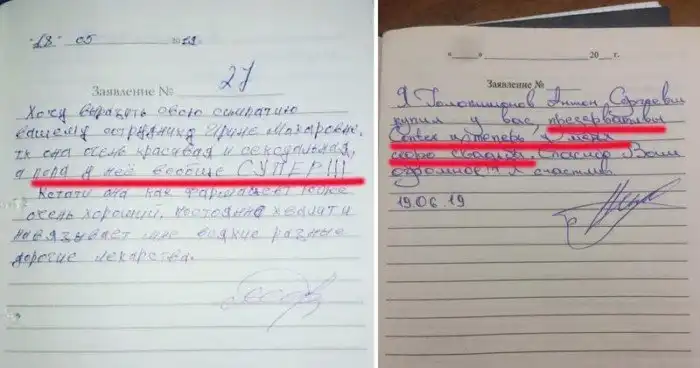 "18" 05 2019
Заявление № 27
Хочу выразить свою симпатию
вашему сотруднику Ирине Макаровне,
тк она очень красивая и сексуальная,
а попа у неё вообще СУПЕР!!!
Кстати она как фармацевт тоже
очень хороший, постоянно хвалит и
навязывает мне всякие разные
дорогие лекарства.
"___" ______ 20__г.
Заявление № ____
Я Антон Сергеевич
купил у вас презервативы
Contex и теперь у меня
скоро свадьба. Спасибо Вам
огромное! Я счастлив
19.06.19